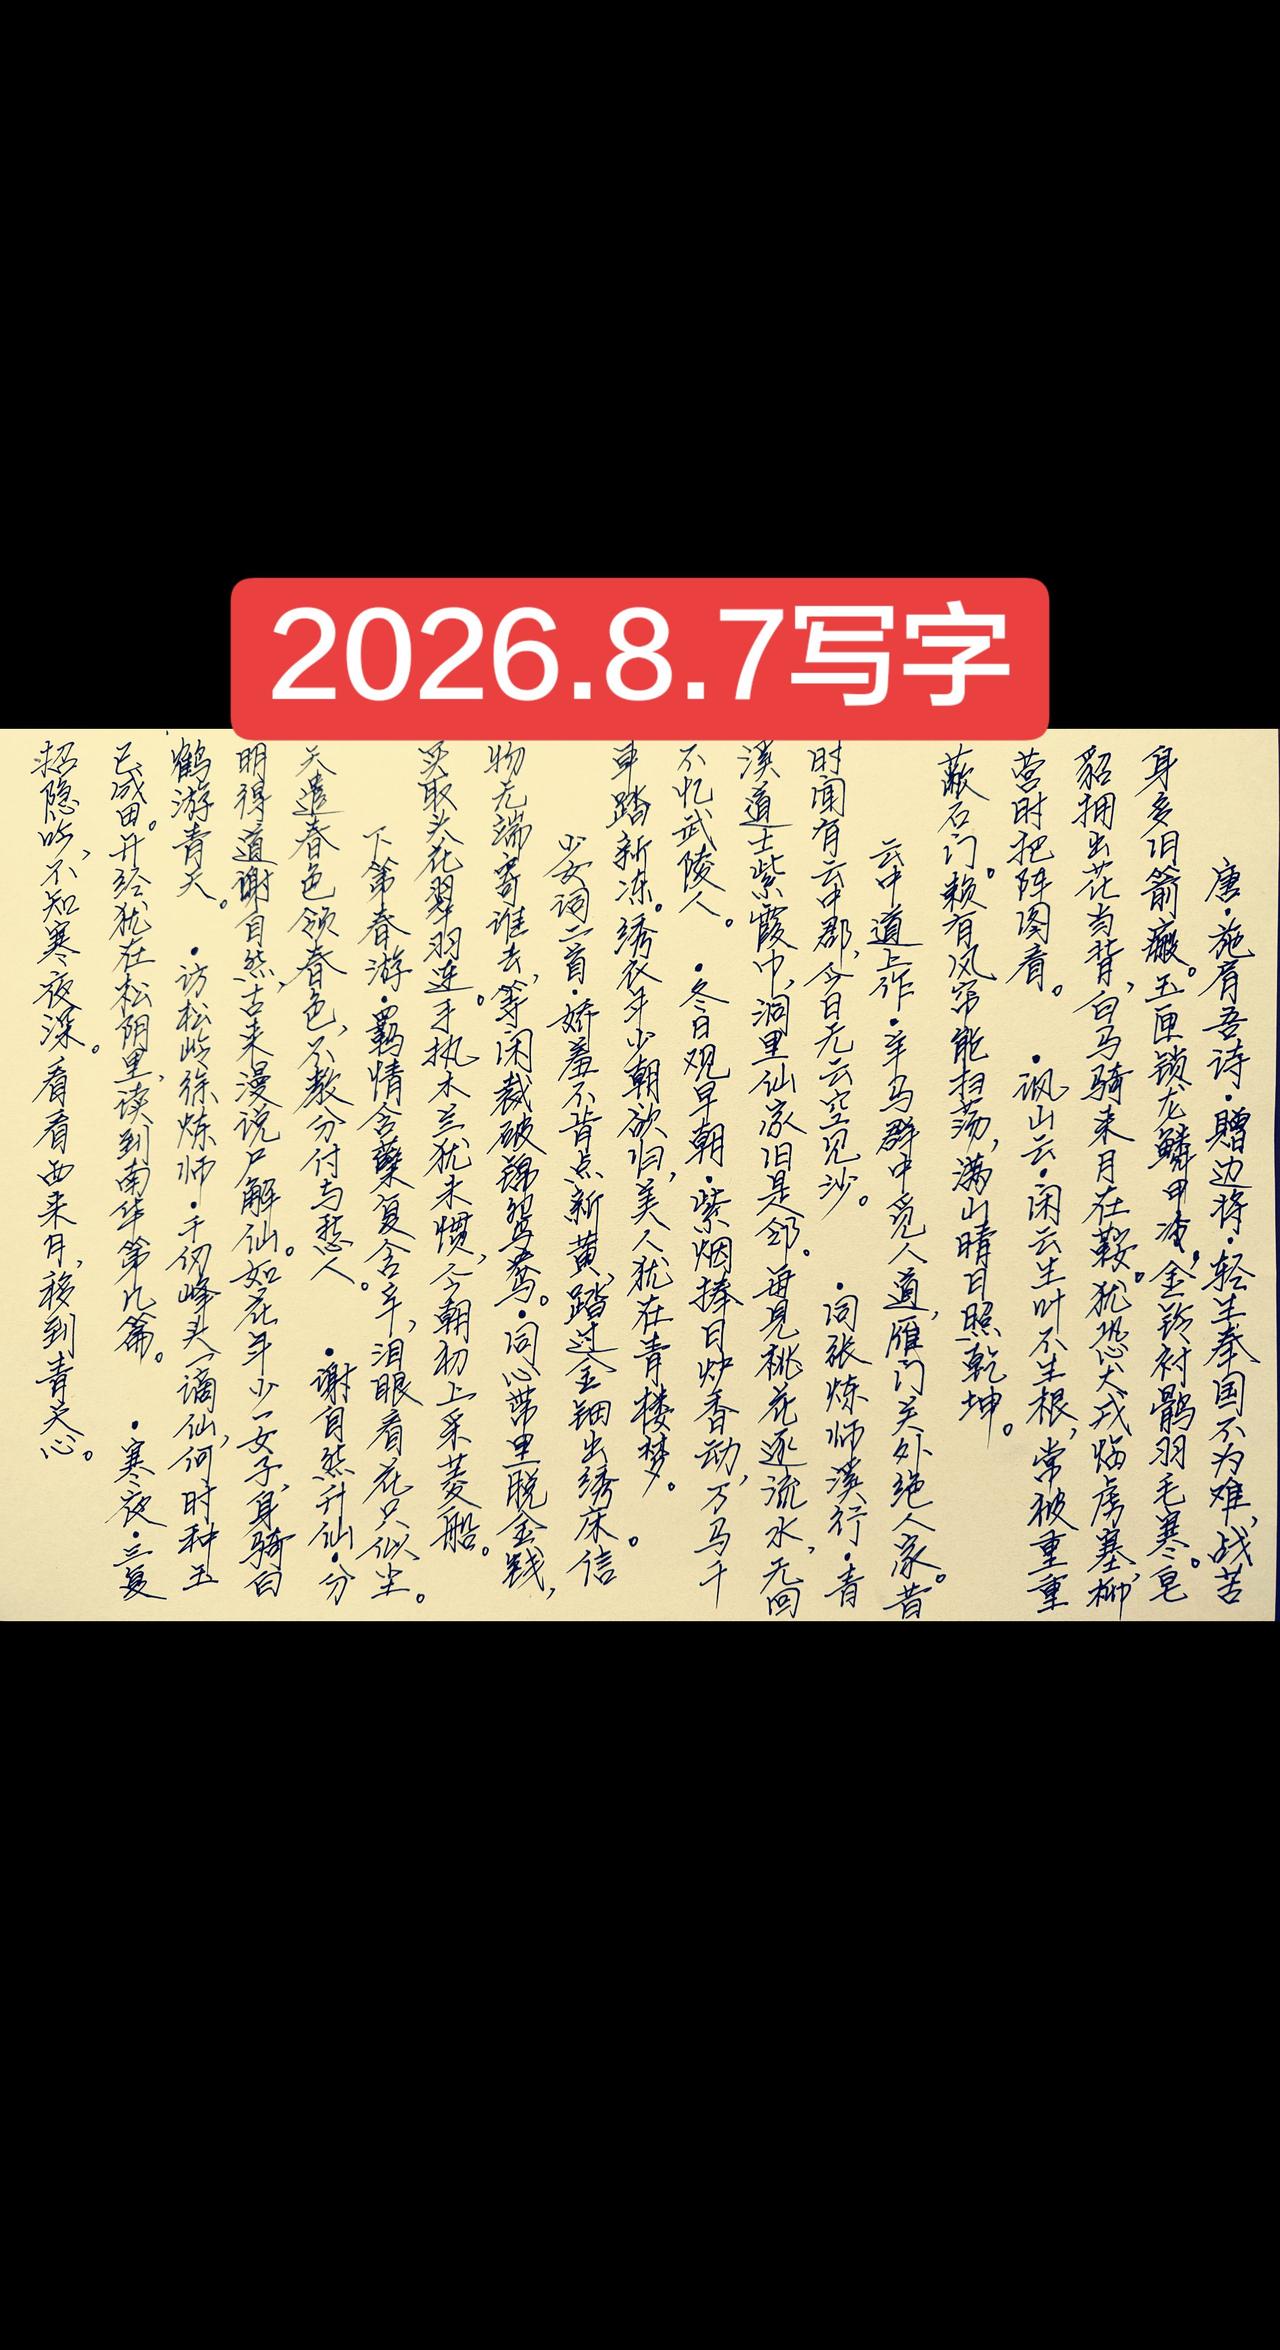 2026.8.7写字
唐·施肩吾诗·赠边将·轻生奉国不为难，战苦
身多旧箭瘢。玉匣锁龙鳞甲冷，金铃衬鹘羽毛寒。皂
貂拥出花当背，白马骑来月在鞍。犹恐犬戎临虏塞，柳
营时把阵图看。 ·讽山云·闲云生叶不生根，常被重重
蔽石门。赖有风帘能扫荡，满山晴日照乾坤。
云中道上作·羊马群中觅人道，雁门关外绝人家。昔
时闻有云中郡，今日无云空见沙。 ·同张炼师溪行·青
溪道士紫霞巾，洞里仙家旧是邻。每见桃花逐流水，无回
不忆武陵人。 ·冬日观早朝·紫烟捧日炉香动，万马千
车踏新冻。绣衣年少朝欲归，美人犹在青楼梦。
少女词二首·娇羞不肯点新黄，踏过金钿出绣床。信
物无端寄谁去，等闲裁破锦鸳鸯。·同心带里脱金钱，
买取头花翠羽连。手执木兰犹未惯，今朝初上采菱船。
下第春游·羁情含蘖复含辛，泪眼看花只似尘。
天遣春色领春色，不教分付与愁人。 ·谢自然升仙·分
明得道谢自然，古来漫说尸解仙。如花年少一女子，身骑白
鹤游青天。 ·访松岭徐炼师·千仞峰头一谪仙，何时种玉
已成田。开经犹在松阴里，读到南华第几篇。 ·寒夜·三复
招隐吟，不知寒夜深。看看西来月，移到青天心。